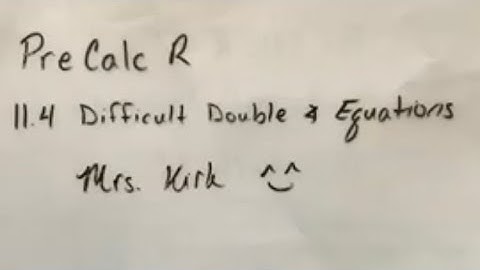 PreCalc R
11.4 Difficult Double ∡ Equations
Mrs. Kirk